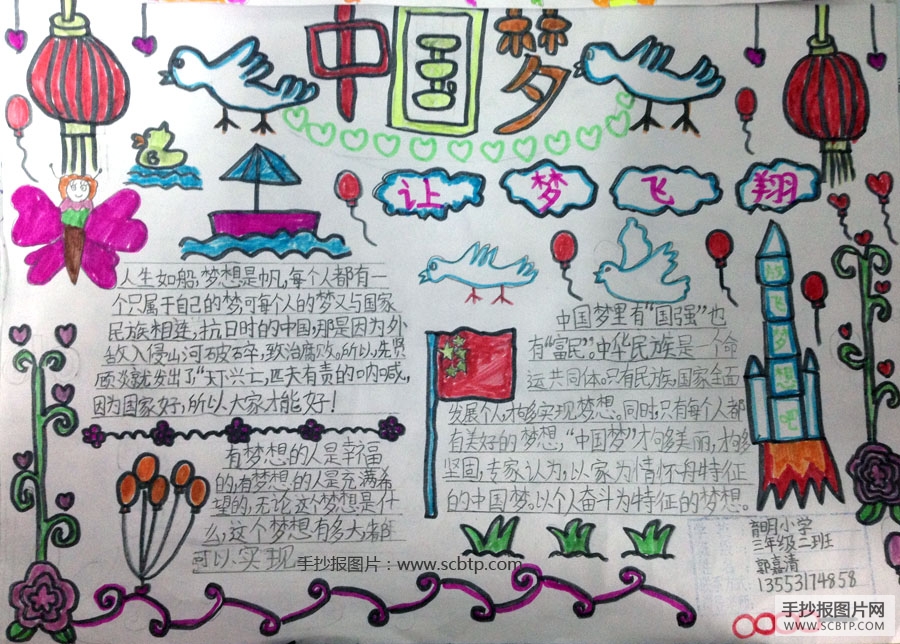 中国梦
让梦飞翔
人生如船,梦想是帆,每个人都有一
个只属于自己的梦,可每个人的梦又与国家
民族相连,抗日时的中国,那是因为外
敌入侵山河破碎,致治腐败。所以,先贤
顾炎就发出了“天下兴亡,匹夫有责的呐喊,
因为国家好,所以大家才能好!
有梦想的人是幸福
的,有梦想的人是充满希
望的,无论这个梦想是什
么,这个梦想有多大,都
可以实现
中国梦里有“国强”也
有“富民”。中华民族是一个命
运共同体。只有民族,国家全面
发展个人,才够实现梦想。同时,只有每个人都
有美好的梦想,“中国梦”才够美丽,才够
坚固,专家认为,以家为情怀舟特征
的中国梦。以个人奋斗为特征的梦想。
飞
梦
想
吧
小学
三年级二班
郭嘉清
13553174858
手抄报图片:www.scbtp.com
手抄报图片网
WWW.SCBTP.COM